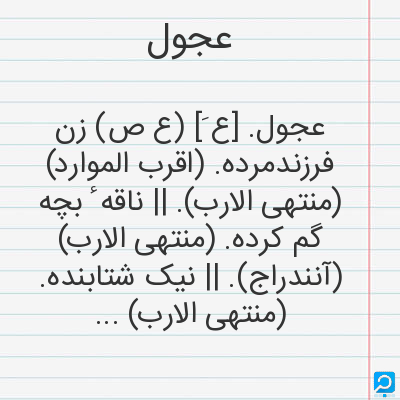 عجول
عجول. [ع َ] (ع ص) زن
فرزندمرده. (اقرب الموارد)
(منتهی الارب). || ناقه ٔ بچه
گم کرده. (منتهی الارب)
(آنندراج). || نیک شتابنده.
(منتهی الارب) ...